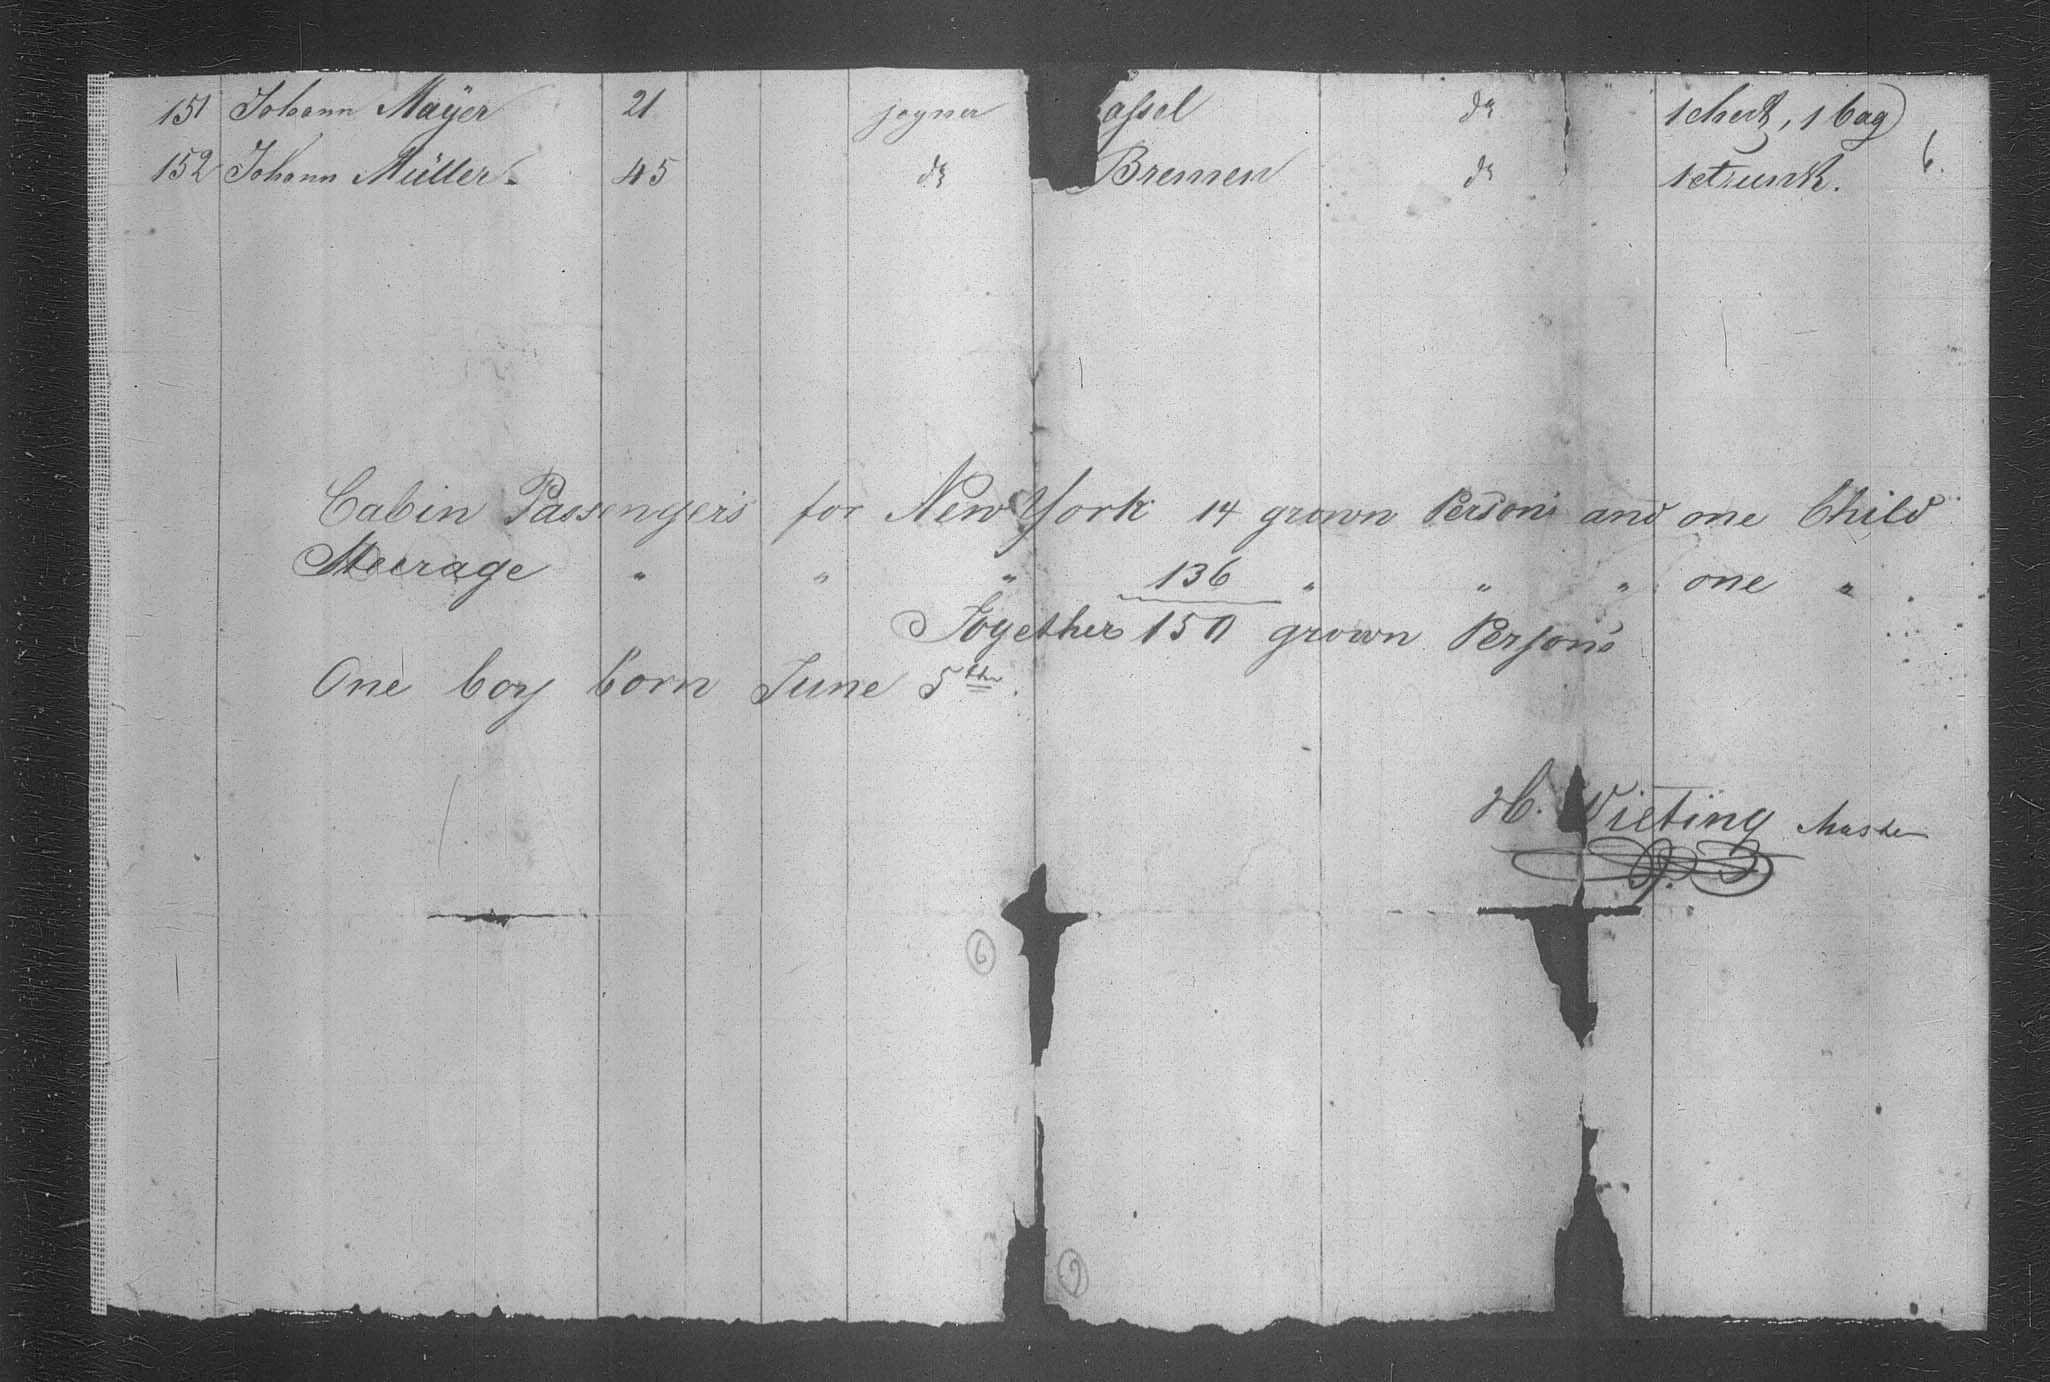 151 Johann Mayer 21 joyner assel do 1 chest, 1 bag
152 Johann Müller 45 do Bremen do 1 trunk. 6.
Cabin Passengers for New York 14 grown Persons and one Child
Steerage " " " 136 " " " one "
Together 150 grown Persons
One boy born June 5th.
H. Wieting Master
6
9